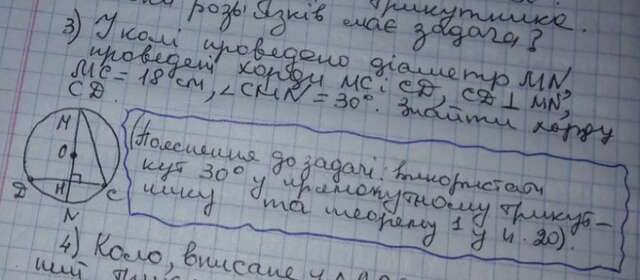 розв'язків має задача?
3) У колі проведено діаметр MN,
проведені хорди MC i CD, CD ⊥ MN,
MC = 18 см, ∠CMN = 30°. Знайти хорду
CD.
M
O
D H C
N
(Пояснення до задачі: використати
кут 30° у прямокутному трикут-
нику та теорему 1 у п. 20).
4) Коло, вписане у